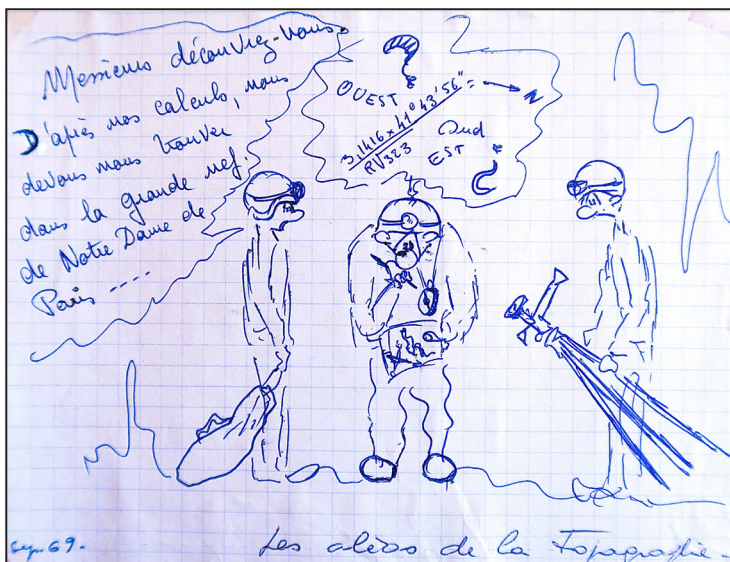 Messieurs découvrez-vous.
D'après nos calculs, nous
devons nous trouver
dans la grande nef.
de Notre Dame de
Paris ----
OUEST
N
3,1416 x 41° 43' 56" =
RV323
Oud
EST
Sep. 69.
Les aléas de la Topographie.